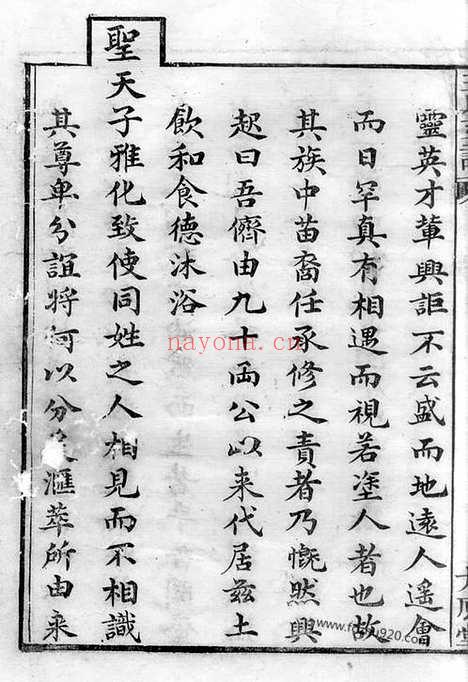 靈英才輩興詎不云盛而地遠人遥會
而日罕真有相遇而視若塗人者也故
其族中苗裔任承修之責者乃慨然興
起曰吾儕由九十两公以来代居兹土
飲和食德沐浴
聖天子雅化致使同姓之人相見而不相識
其尊卑分誼將何以分爰滙萃所由来
nayona.cn